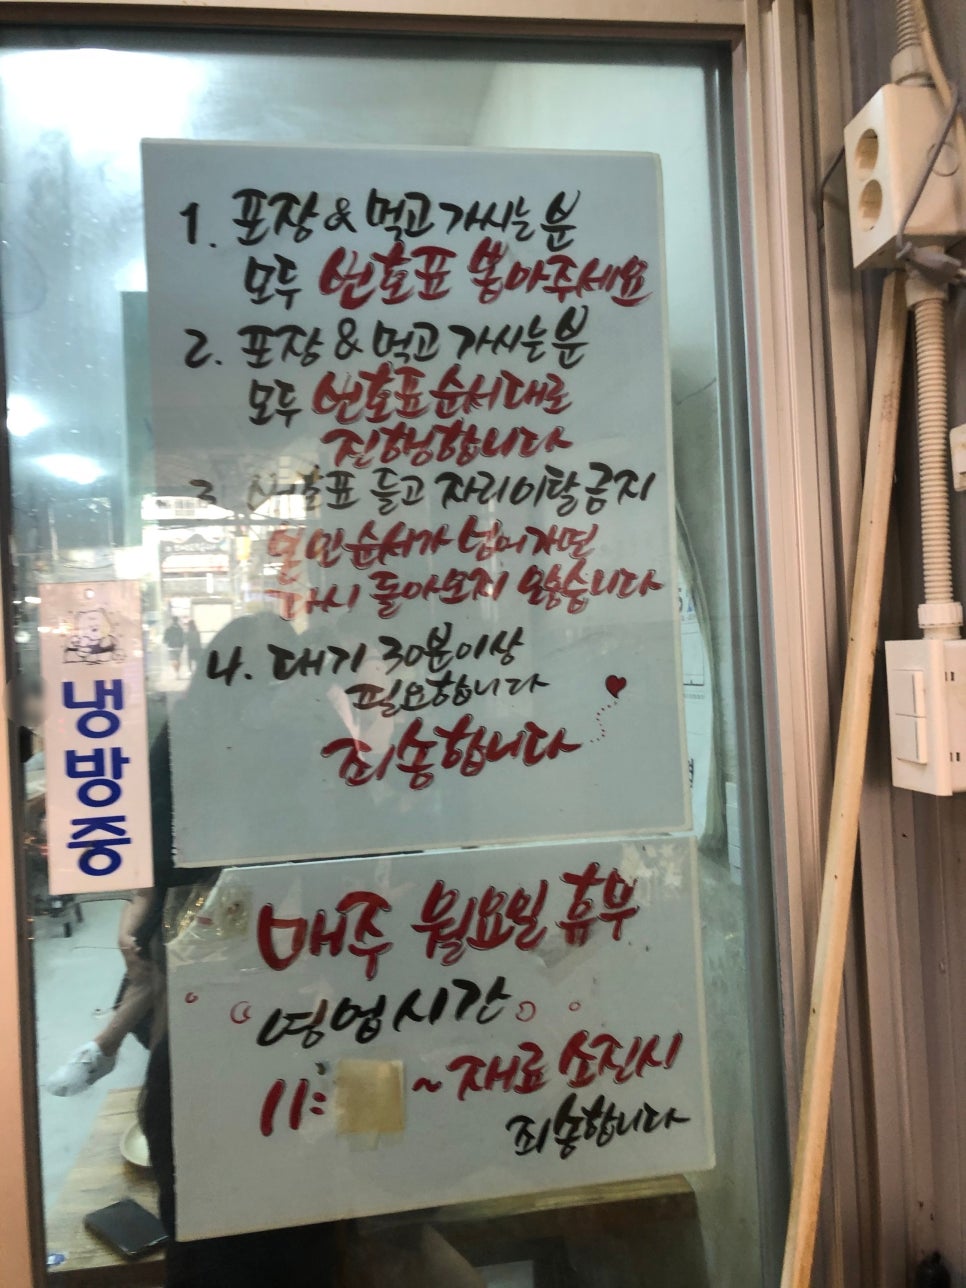 1. 포장 & 먹고 가시는 분
모두 번호표 뽑아주세요
2. 포장 & 먹고 가시는 분
모두 번호표 순서대로
진행합니다
3. 번호표 들고 자리이탈 금지
본인 순서가 넘어가면
다시 돌아오지 않습니다
4. 대기 30분이상
필요합니다
죄송합니다
냉방중
매주 월요일 휴무
영업시간
11: ~ 재료 소진시
죄송합니다